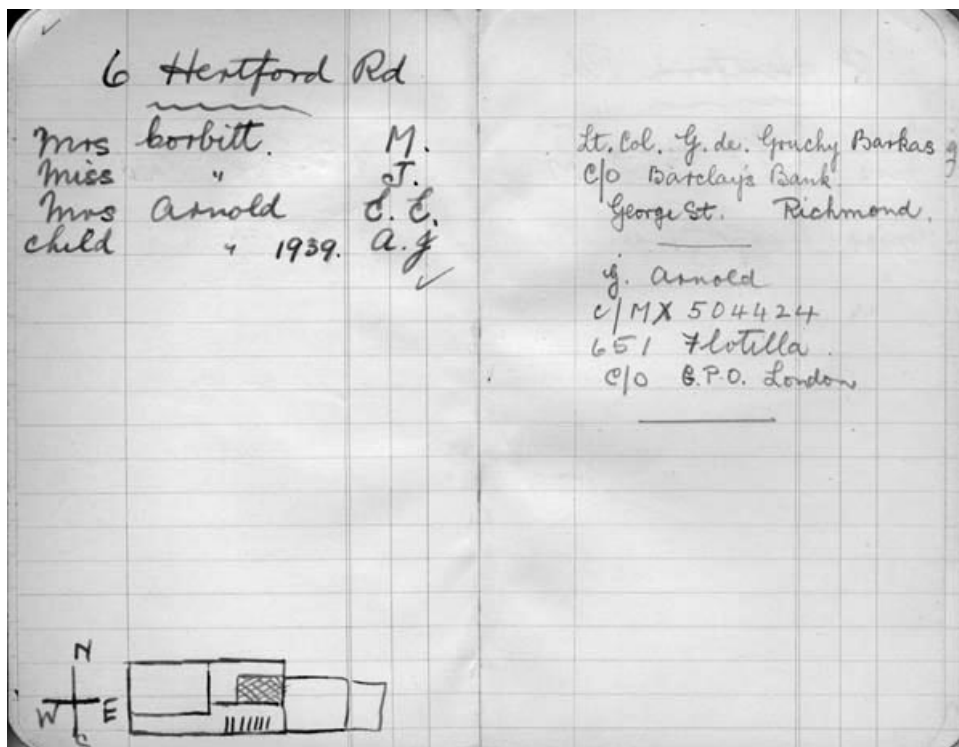 6 Hertford Rd
Mrs Corbitt. M.
Miss " J.
Mrs Arnold E. E.
child " 1939. A. J
Lt. Col. G. de. Gruchy Barkas
C/O Barclay's Bank
George St. Richmond.
J. Arnold
C/MX 504424
651 Flotilla
C/O G.P.O. London
N
W E
S